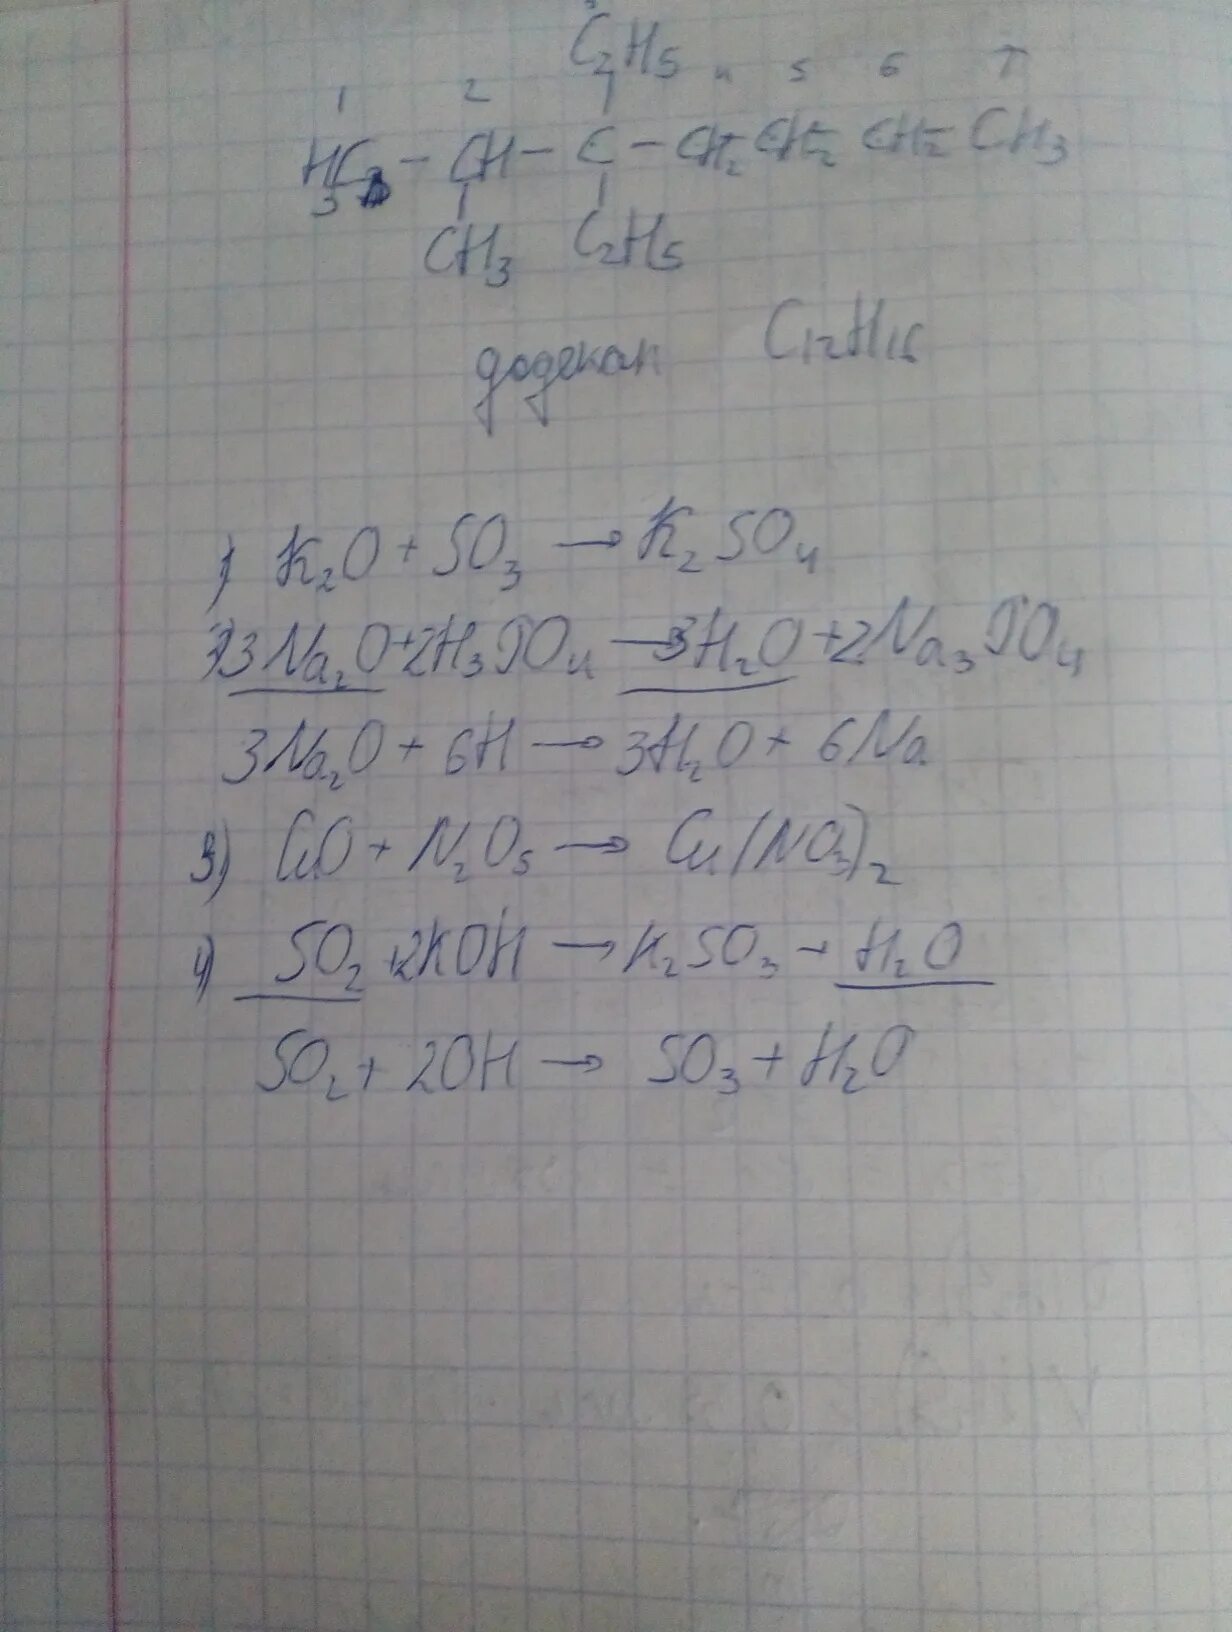 C₂H₅ 4 5 6 7
1 2
H₃C - CH - C - CH₂ CH₂ CH₂ CH₃
CH₃ C₂H₅
додекан C₁₂H₁₆
1) K₂O + SO₃ → K₂SO₄
3Na₂O + 2H₃PO₄ → 3H₂O + 2Na₃PO₄
3Na₂O + 6H → 3H₂O + 6Na
3) CuO + N₂O₅ → Cu(NO₃)₂
4) SO₂ + 2KOH → K₂SO₃ + H₂O
SO₂ + 2OH → SO₃ + H₂O